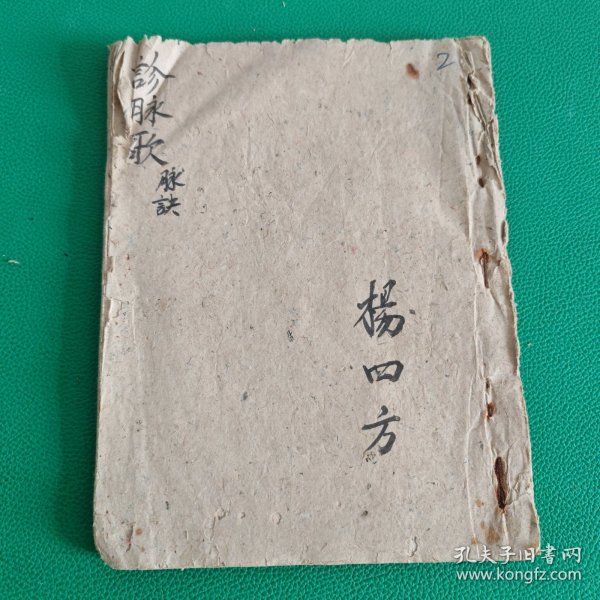 診脉歌
脉訣
2
楊四方
孔夫子旧書网
www.kongfz.com